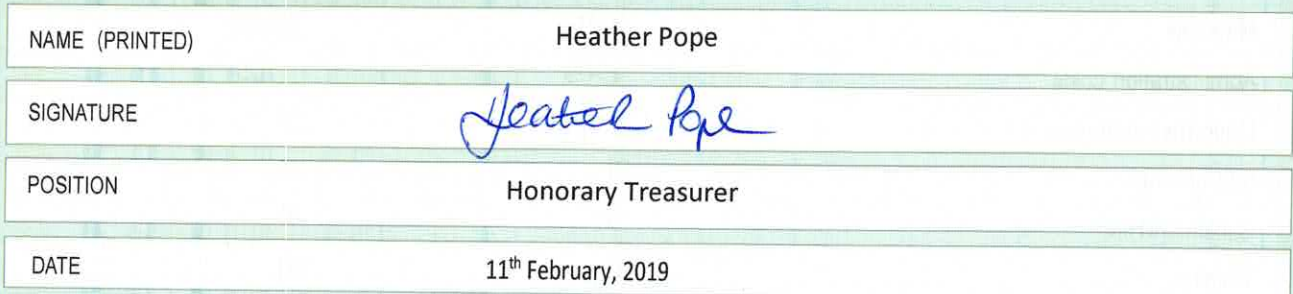 NAME (PRINTED) Heather Pope
SIGNATURE Heather Pope
POSITION Honorary Treasurer
DATE 11th February, 2019